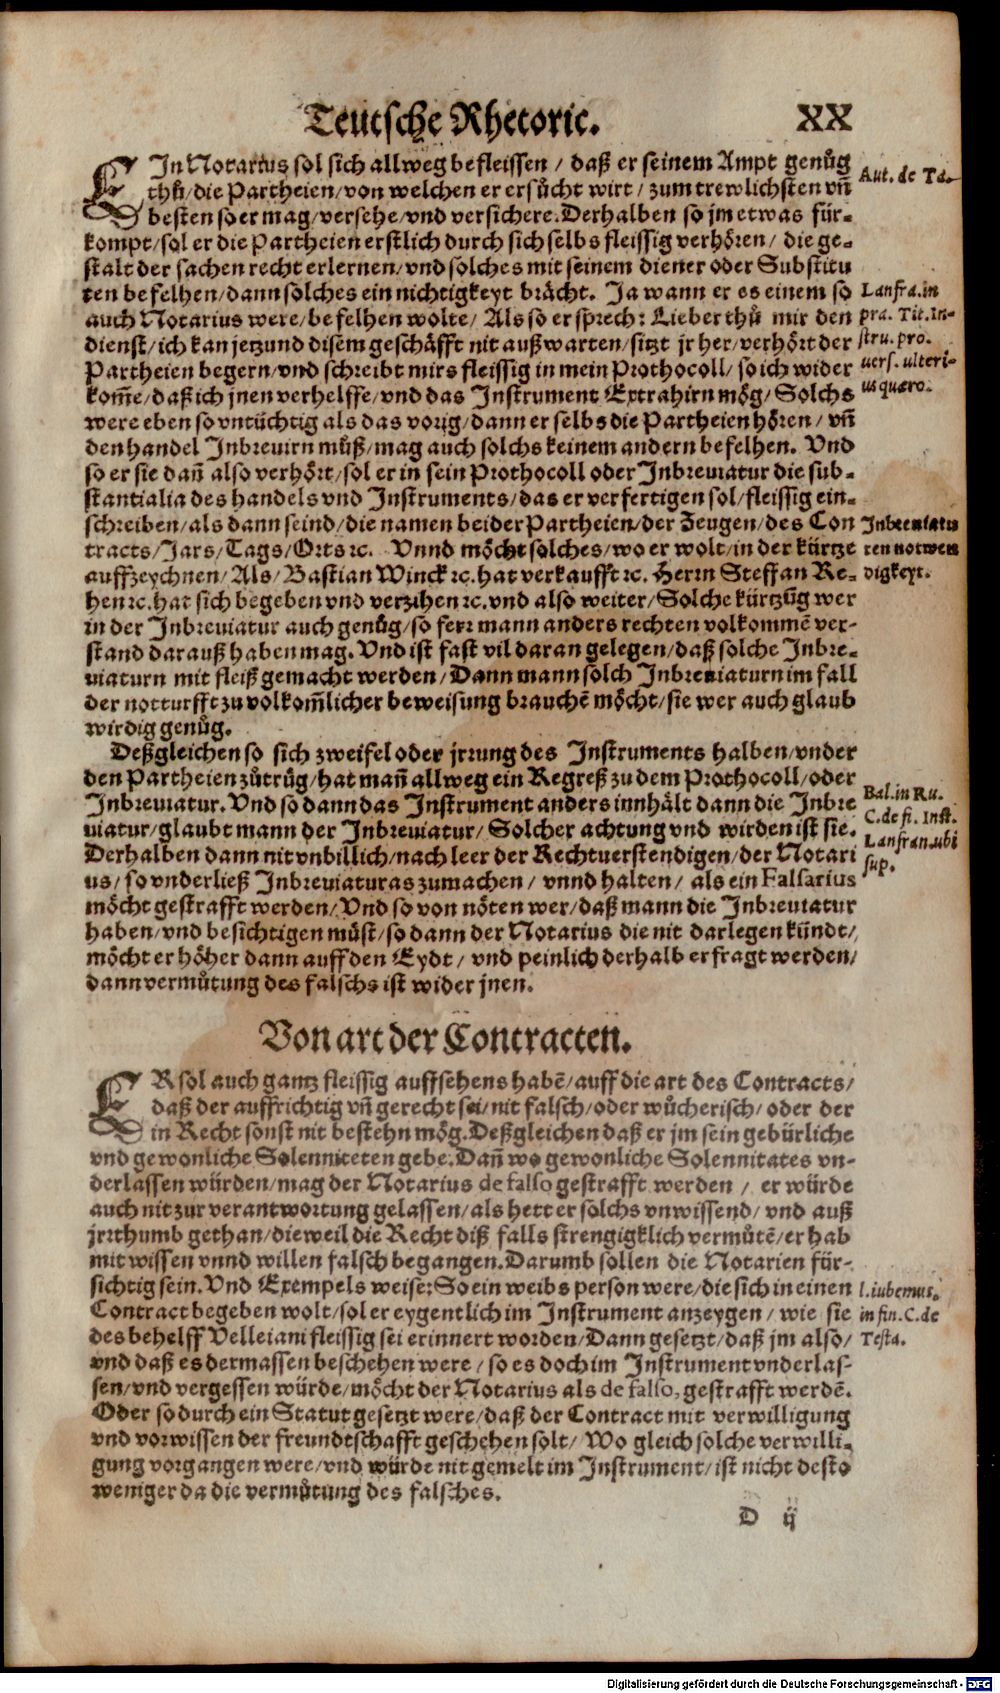 Teutsche Rhetoric. XX
EIn Notarius sol sich allweg befleissen / daß er seinem Ampt genůg
thů / die Partheien / von welchen er ersůcht wirt / zum trewlichsten vñ
besten so er mag / versehe / vnd versichere. Derhalben so jm etwas für-
kompt / sol er die Partheien erstlich durch sich selbs fleissig verhören / die ge-
stalt der sachen recht erlernen / vnd solches mit seinem diener oder Substitu
ten befelhen / dann solches ein nichtigkeyt brächt. Ja wann er es einem so
auch Notarius were / befelhen wolte / Als so er sprech: Lieber thů mir den
dienst / ich kan jetzund disem geschäfft nit außwarten / sitzt jr her / verhört der
Partheien begern / vnd schreibt mirs fleissig in mein Prothocoll / so ich wider
kom̃e / daß ich jnen verhelffe / vnd das Instrument Extrahirn mög / Solchs
were eben so vntüchtig als das vorig / dann er selbs die Partheien hören / vñ
den handel Inbreuirn můß / mag auch solchs keinem andern befelhen. Vnd
so er sie dañ also verhört / sol er in sein Prothocoll oder Inbreuiatur die sub-
stantialia des handels vnd Instruments / das er verfertigen sol / fleissig ein-
schreiben / als dann seind / die namen beider Partheien / der Zeugen / des Con
tracts / Jars / Tags / Orts ꝛc. Vnnd möcht solches / wo er wolt / in der kürtze
auffzeychnen / Als / Bastian Winck ꝛc. hat verkaufft ꝛc. Herrn Steffan Re-
hen ꝛc. hat sich begeben vnd verzihen ꝛc. vnd also weiter / Solche kürtzũg wer
in der Inbreuiatur auch genůg / so ferr mann anders rechten volkommẽ ver-
stand darauß haben mag. Vnd ist fast vil daran gelegen / daß solche Inbre-
uiaturn mit fleiß gemacht werden / Dann mann solch Inbreuiaturn im fall
der notturfft zu volkom̃licher beweisung brauchẽ möcht / sie wer auch glaub
wirdig genůg.
Deßgleichen so sich zweifel oder jrrung des Instruments halben / vnder
den Partheien zůtrüg / hat mañ allweg ein Regreß zu dem Prothocoll / oder
Inbreuiatur. Vnd so dann das Instrument anders innhält dann die Inbre
uiatur / glaubt mann der Inbreuiatur / Solcher achtung vnd wirden ist sie.
Derhalben dann nit vnbillich / nach leer der Rechtuerstendigen / der Notari
us / so vnderließ Inbreuiaturas zumachen / vnnd halten / als ein Falsarius
möcht gestrafft werden / Vnd so von nöten wer / daß mann die Inbreuiatur
haben / vnd besichtigen můst / so dann der Notarius die nit darlegen kündt /
möcht er höher dann auff den Eydt / vnd peinlich derhalb erfragt werden /
dann vermůtung des falschs ist wider jnen.
Von art der Contracten.
ER sol auch gantz fleissig auffsehens habẽ / auff die art des Contracts /
daß der auffrichtig vñ gerecht sei / nit falsch / oder wůcherisch / oder der
in Recht sonst nit bestehn mög. Deßgleichen daß er jm sein gebürliche
vnd gewonliche Solenniteten gebe. Dañ wo gewonliche Solennitates vn-
derlassen würden / mag der Notarius de falso gestrafft werden / er würde
auch nit zur verantwortung gelassen / als hett er solchs vnwissend / vnd auß
jrrthumb gethan / dieweil die Recht diß falls strengigklich vermůtẽ / er hab
mit wissen vnnd willen falsch begangen. Darumb sollen die Notarien für-
sichtig sein. Vnd Exempels weise: So ein weibs person were / die sich in einen
Contract begeben wolt / sol er eygentlich im Instrument anzeygen / wie sie
des behelff Velleiani fleissig sei erinnert worden / Dann gesetzt / daß jm also /
vnd daß es dermassen beschehen were / so es doch im Instrument vnderlas-
sen / vnd vergessen würde / möcht der Notarius als de falso, gestrafft werdẽ.
Oder so durch ein Statut gesetzt were / daß der Contract mit verwilligung
vnd vorwissen der freundtschafft geschehen solt / Wo gleich solche verwilli-
gung vorgangen were / vnd würde nit gemelt im Instrument / ist nicht desto
weniger da die vermůtung des falsches.
D ij
Aut. de Ta-
Lanfra. in
pra. Tit. In-
stru. pro.
uers. ulteri-
us quæro.
Inbreuiatu
ren notwen
digkeyt.
Bal. in Ru.
C. de fi. Inst.
Lanfran. ubi
sup.
l. iubemus.
in fin. C. de
Testa.
Digitalisierung gefördert durch die Deutsche Forschungsgemeinschaft - DFG